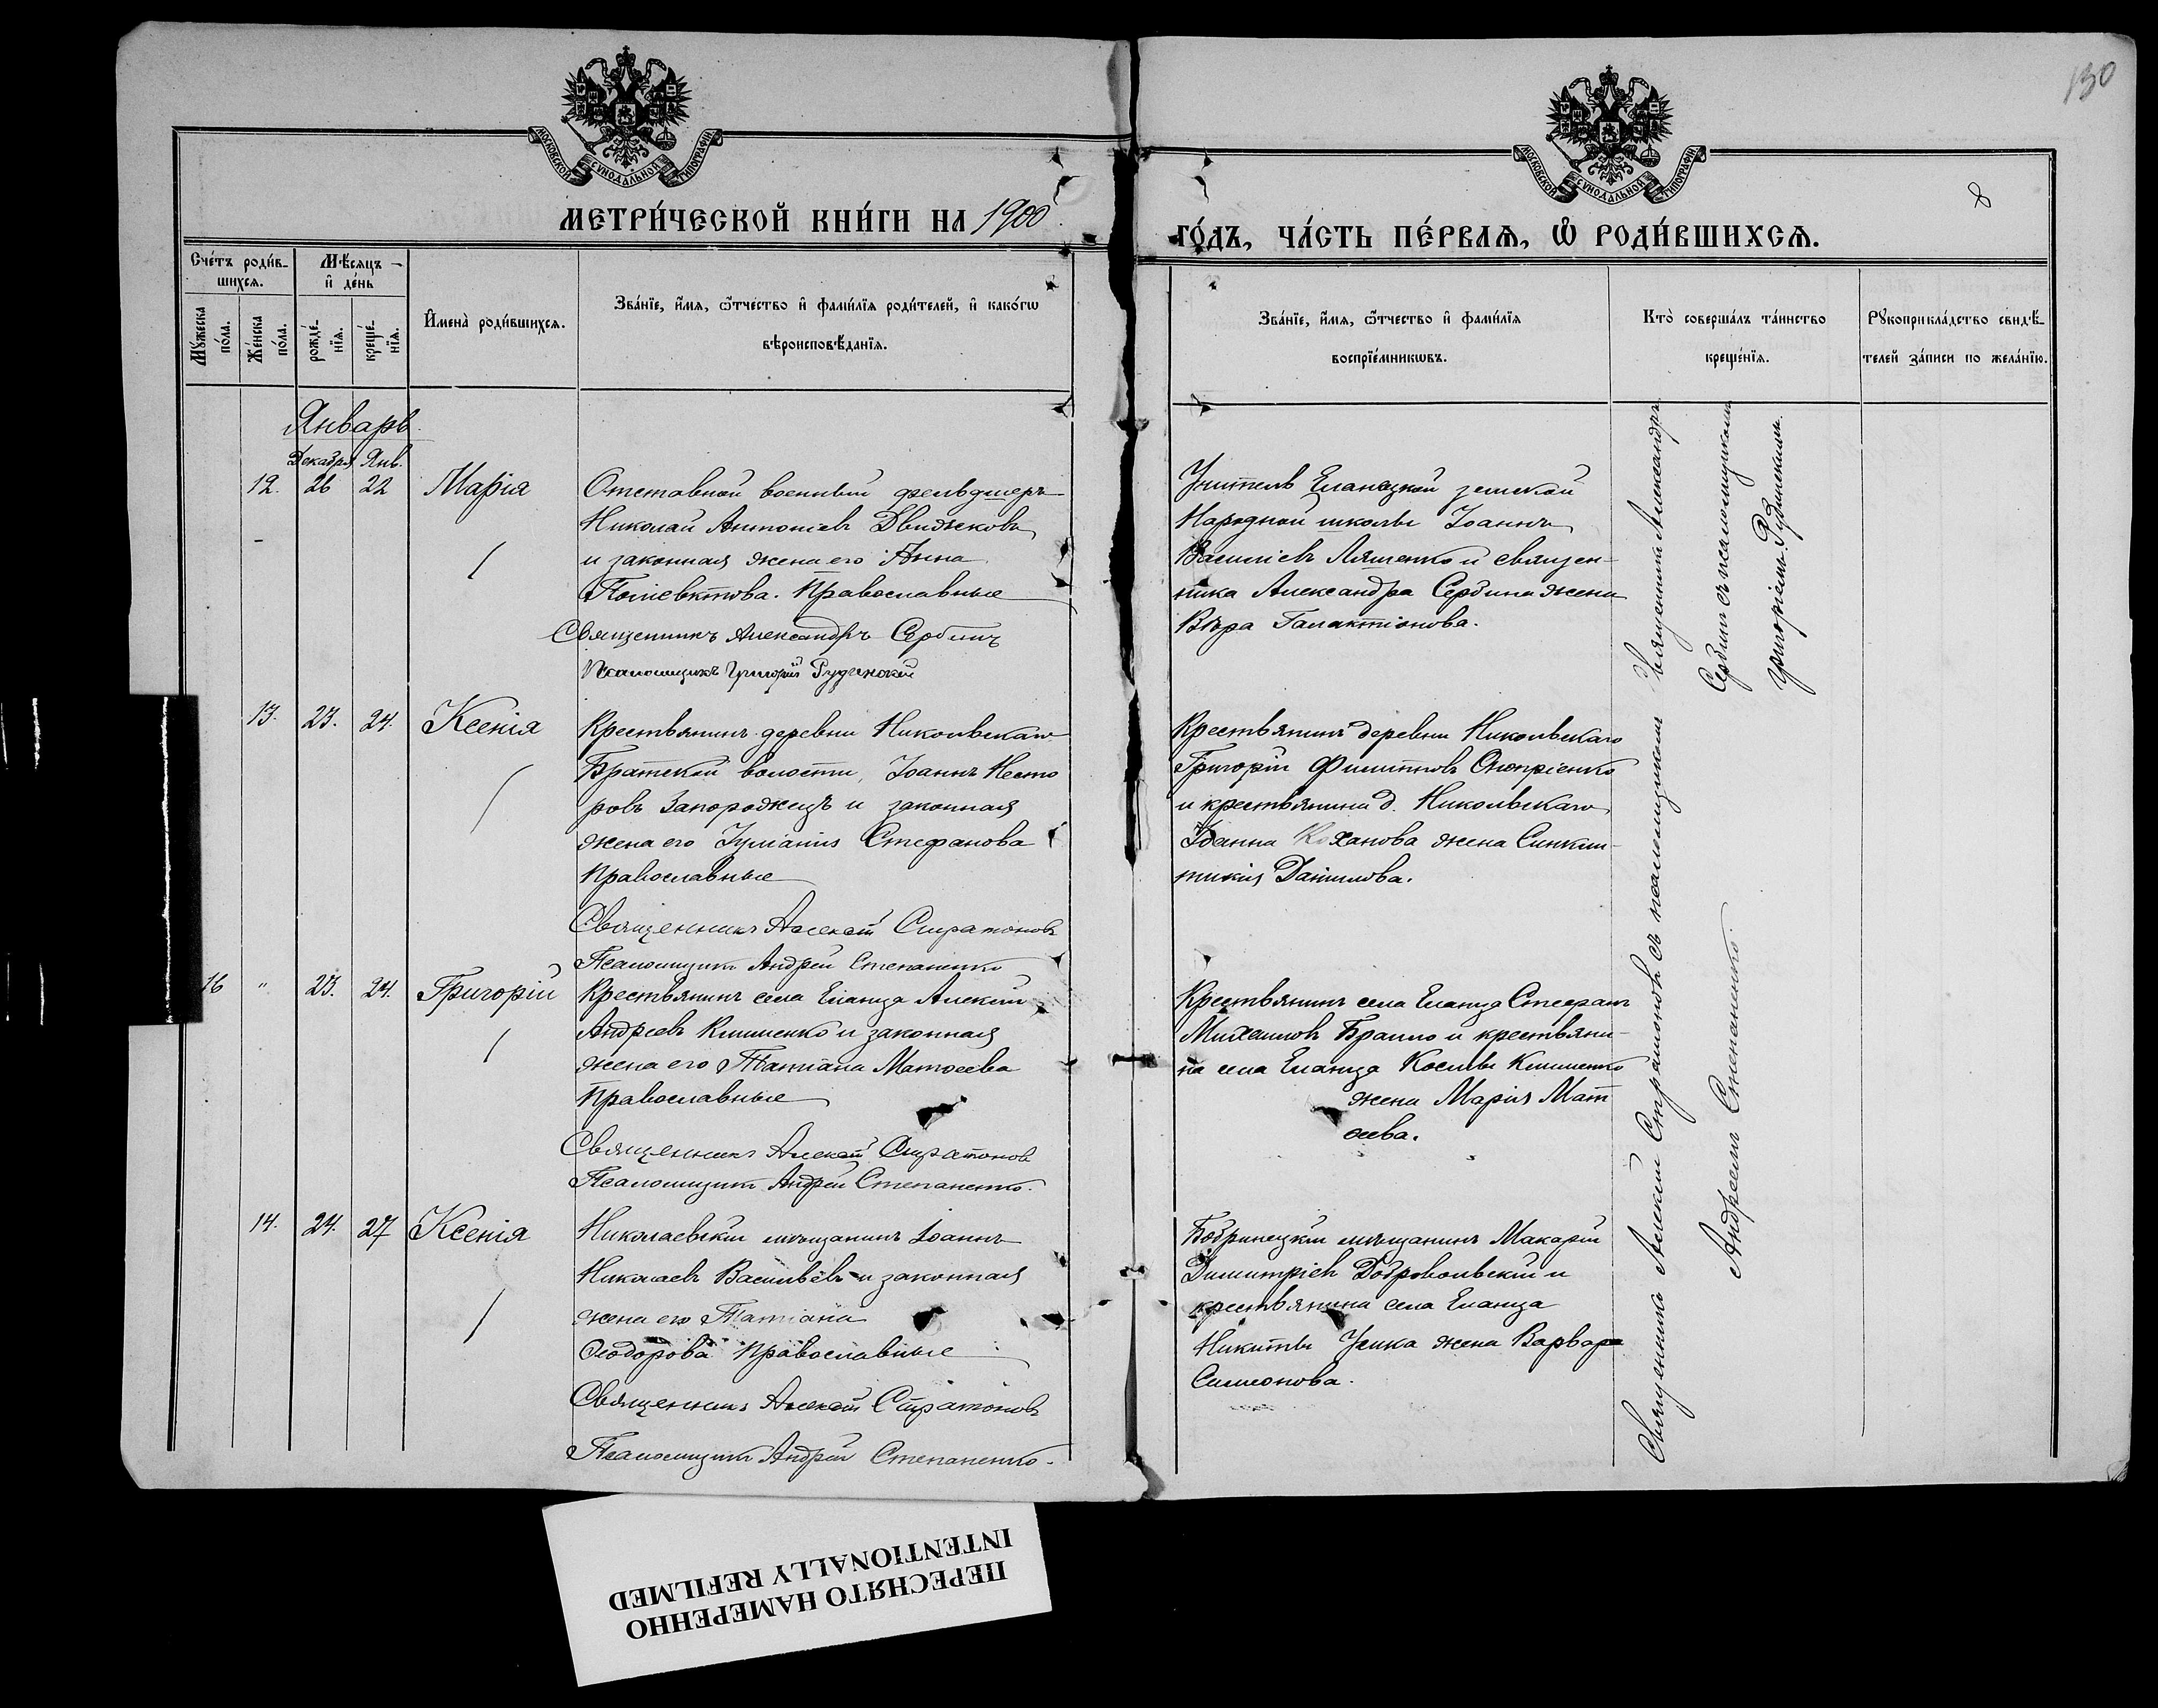 130
МОСКОВСКОЙ СУНОДАЛЬНОЙ ТИПОГРАФИИ
МОСКОВСКОЙ СУНОДАЛЬНОЙ ТИПОГРАФИИ
МЕТРИ́ЧЕСКОЙ КНИ́ГИ НА 1900
ГО́ДЪ, ЧА́СТЬ ПЕ́РВАѦ, Ѡ҆ РОДИ́ВШИХСѦ.
8
Сче́тъ роди́в-
шихсѧ.
Мꙋ́жеска
по́ла.
Же́нска
по́ла.
Мѣ́сѧцъ
и҆ де́нь
рожде́-
нїѧ.
креще́-
нїѧ.
И҆мена̀ роди́вшихсѧ.
Зва́нїе, и҆́мѧ, ѻ҆́тчество и҆ фами́лїѧ роди́телей, и҆ како́гѡ
вѣроисповѣ́данїѧ.
Зва́нїе, и҆́мѧ, ѻ҆́тчество и҆ фами́лїѧ
воспрїе́мникѡвъ.
Кто̀ соверша́лъ та́инство
креще́нїѧ.
Рꙋкоприкла́дство свидѣ́-
телей за́писи по жела́нїю.
Январь
Декабря Янв.
12. 26 22 Марія
Отставной военный фельдшеръ
Николай Антоніевъ Движковъ
и законная жена его Анна
Поліевктова. Православные
Священникъ Александръ Сербинъ
Псаломщикъ Григорій Рудинскій
Учитель Еланецкой земской
Народной школы Іоаннъ
Василіевъ Ляшенко и священ-
ника Александра Сербина жена
Вѣра Галактіонова.
Священникъ Александръ
Сербинъ съ псаломщикомъ
Григоріемъ Рудинскимъ.
13. 23. 24. Ксенія
Крестьянинъ деревни Никольскаго
Братской волости, Іоаннъ Несто
ровъ Запорожецъ и законная
жена его Іуліанія Стефанова
Православные
Священникъ Алексій Стратоновъ
Псаломщикъ Андрей Степаненко
Крестьянинъ деревни Никольскаго
Григорій Филипповъ Онопріенко
и крестьянина д. Никольскаго
Іоанна Коханова жена Синкли-
тикія Даніилова.
16 " 23. 24. Григорій
Крестьянинъ села Еланца Алексій
Андреевъ Клименко и законная
жена его Татіана Матѳеева
Православные
Священникъ Алексій Стратоновъ
Псаломщикъ Андрей Степаненко.
Крестьянинъ села Еланца Стефанъ
Михаиловъ Браило и крестьяни-
на села Еланца Косьмы Клименко
жена Марія Мат
ѳеева.
14. 24. 27 Ксенія
Николаевскій мѣщанинъ Іоаннъ
Николаевъ Васильевъ и законная
жена его Татіана
Ѳеодорова Православные
Священникъ Алексій Стратоновъ
Псаломщикъ Андрей Степаненко.
Бобринецкій мѣщанинъ Макарій
Димитріевъ Добровольскій и
крестьянина села Еланца
Никиты Усика жена Варвара
Симеонова.
Священникъ Алексій Стратоновъ съ псаломщикомъ
Андреемъ Степаненко.
ПЕРЕСНЯТО НАМЕРЕННО
INTENTIONALLY REFILMED